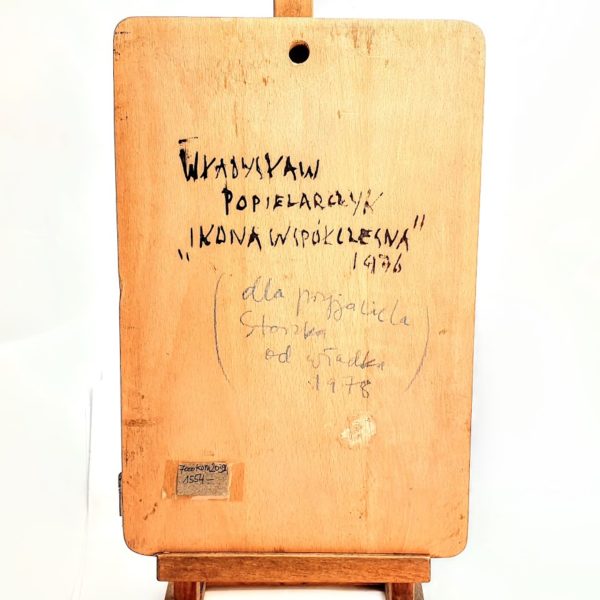 WŁADYSŁAW
POPIELARCZYK
"IKONA WSPÓŁCZESNA"
1976
(dla przyjaciela
Staszka
od Władka)
1978
1554 —